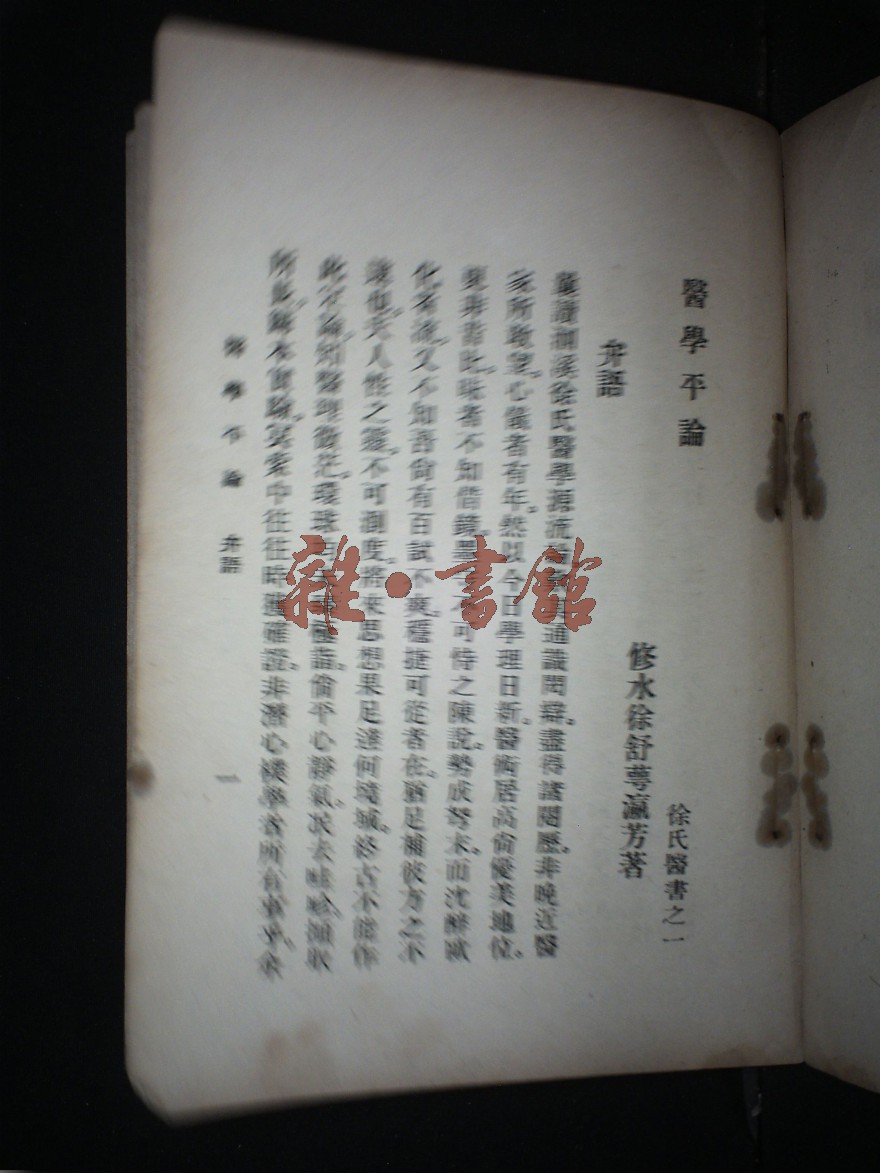 醫學平論
徐氏醫書之一
修水徐舒萼瀛芳著
弁語
讀洄溪徐氏醫學源流通識閎辯。盡得諸閱歷。非晚近醫
家所敢望。心儀者有年。然以今日學理日新。醫術居高尚優美地位。
更非昔比。昧者不知借鏡。可恃之陳說。勢成弩末。而沈醉歐
化者流。又不知吾尙有百試不爽。穩捷可從者在。猶足補彼方之不
逮也。夫人性之靈。不可測度。將來思想果足達何境域。終古不能作
此分論。知醫理微茫。環球極詣。倘平心靜氣。泯去畦畛。擷取
所長。歸本實驗。冥索中往往時獲確證。非潛心樸學者所有事乎。余
醫學平論 弁語
一
雜·書館